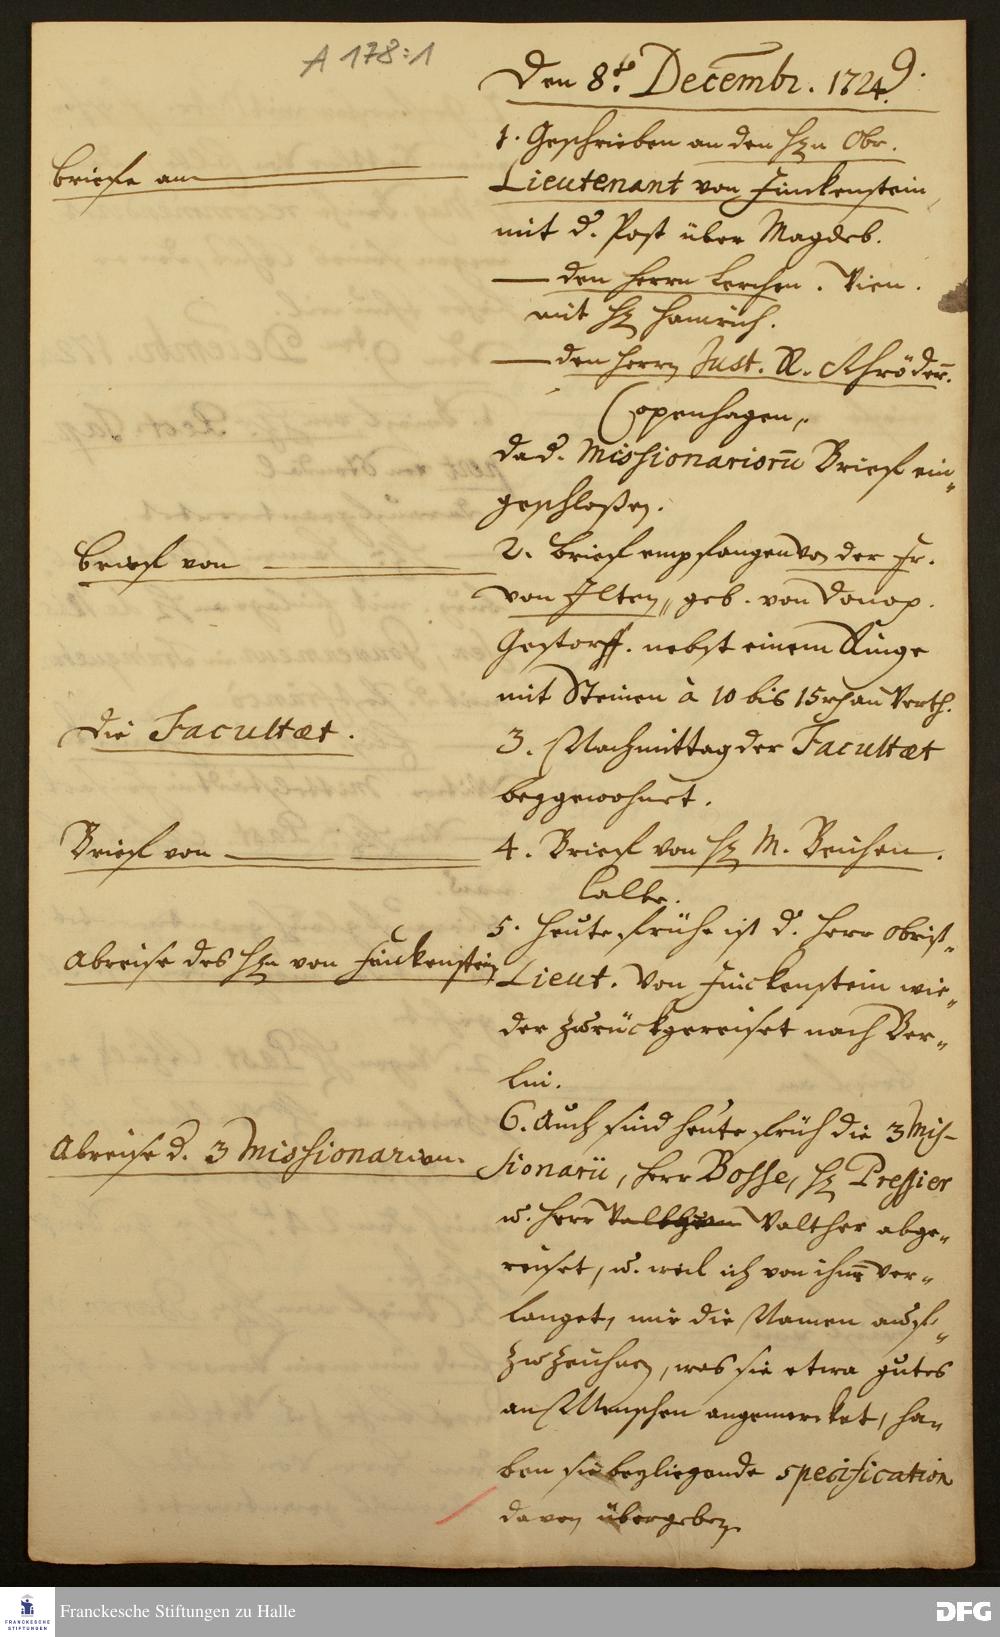 A 178:1
Den 8ten Decembr. 1724.
Briefe an
1. Geschrieben an den Hℓn Obr.
Lieutenant von Finckenstein,
mit d. Post über Magdeb.
— den Herrn Lerchen. Vien.
mit H. Hainrich.
— den Herrn Just. R. Schrödern.
Copenhagen,
da d. Missionariorum Brief ein-
geschloßen.
Brief von
2. Brief empfangen von der Fr.
von Ilten, geb. von Donop.
Gestorff. nebst einem Ringe
mit Steinen à 10 bis 15 rh an Werth.
Die Facultæt.
3. Nachmittag der Facultæt
beygewohnet.
Brief von
4. Brief von H. M. Beuchen.
Calbe.
Abreise des Hℓn von Finckenstein
5. Heute frühe ist d. Herr Obrist-
Lieut. von Finckenstein wie-
der zurückgereiset nach Ber-
lin.
Abreise d. 3 Missionariorum.
6. Auch sind heute früh die 3 Mis-
sionarii, Herr Bosse, H. Pressier
u. Herr Walther abge-
reiset, u. weil ich von ihnen ver-
langet, mir die Namen auff-
zuzeichnen, was sie etwa gutes
an Menschen angemercket, ha-
ben sie beyliegende specification
davon übergeben.
FRANCKESCHE
STIFTUNGEN
Franckesche Stiftungen zu Halle
DFG